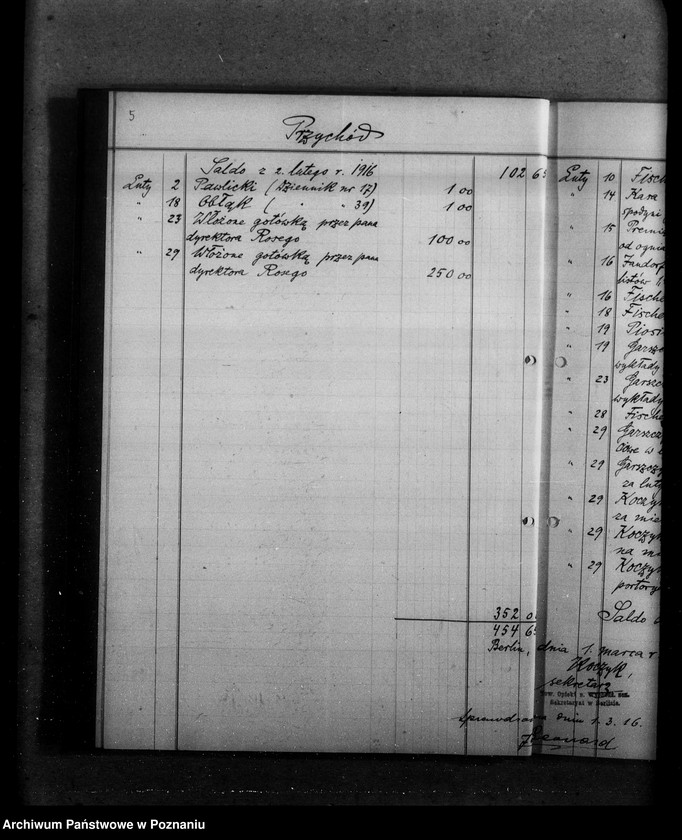 5
Przychód
Saldo z 2. lutego r. 1916 102 65
Luty 2 Pawlicki (Dziennik nr 17) 1 00
" 18 Obłąk ( " " 39) 1 00
" 23 Włożone gotówką przez pana
dyrektora Rosego 100 00
" 29 Włożone gotówką przez pana
dyrektora Rosego 250 00
352 0
454 65
Luty 10 Fisch
" 14 Kasa
" 15 Premi
od ognia
" 16
listów
" 16 Fische
" 18 Fische
" 19
" 19 Garszc
wykłady
" 23 Garszc
wykłady
" 28 Fische
" 29 Garszcz
" 29 Garszczy
za luty
" 29 Koczyk
za mie
" 29 Koczyk
na mi
" 29 Koczyk
portory
Saldo
Berlin, dnia 1. marca r
Koczyk,
sekretarz
Tow. Opieki n.
Sekretaryat w Berlinie.
Sprawdzono dnia 1. 3. 16.
Archiwum Państwowe w Poznaniu